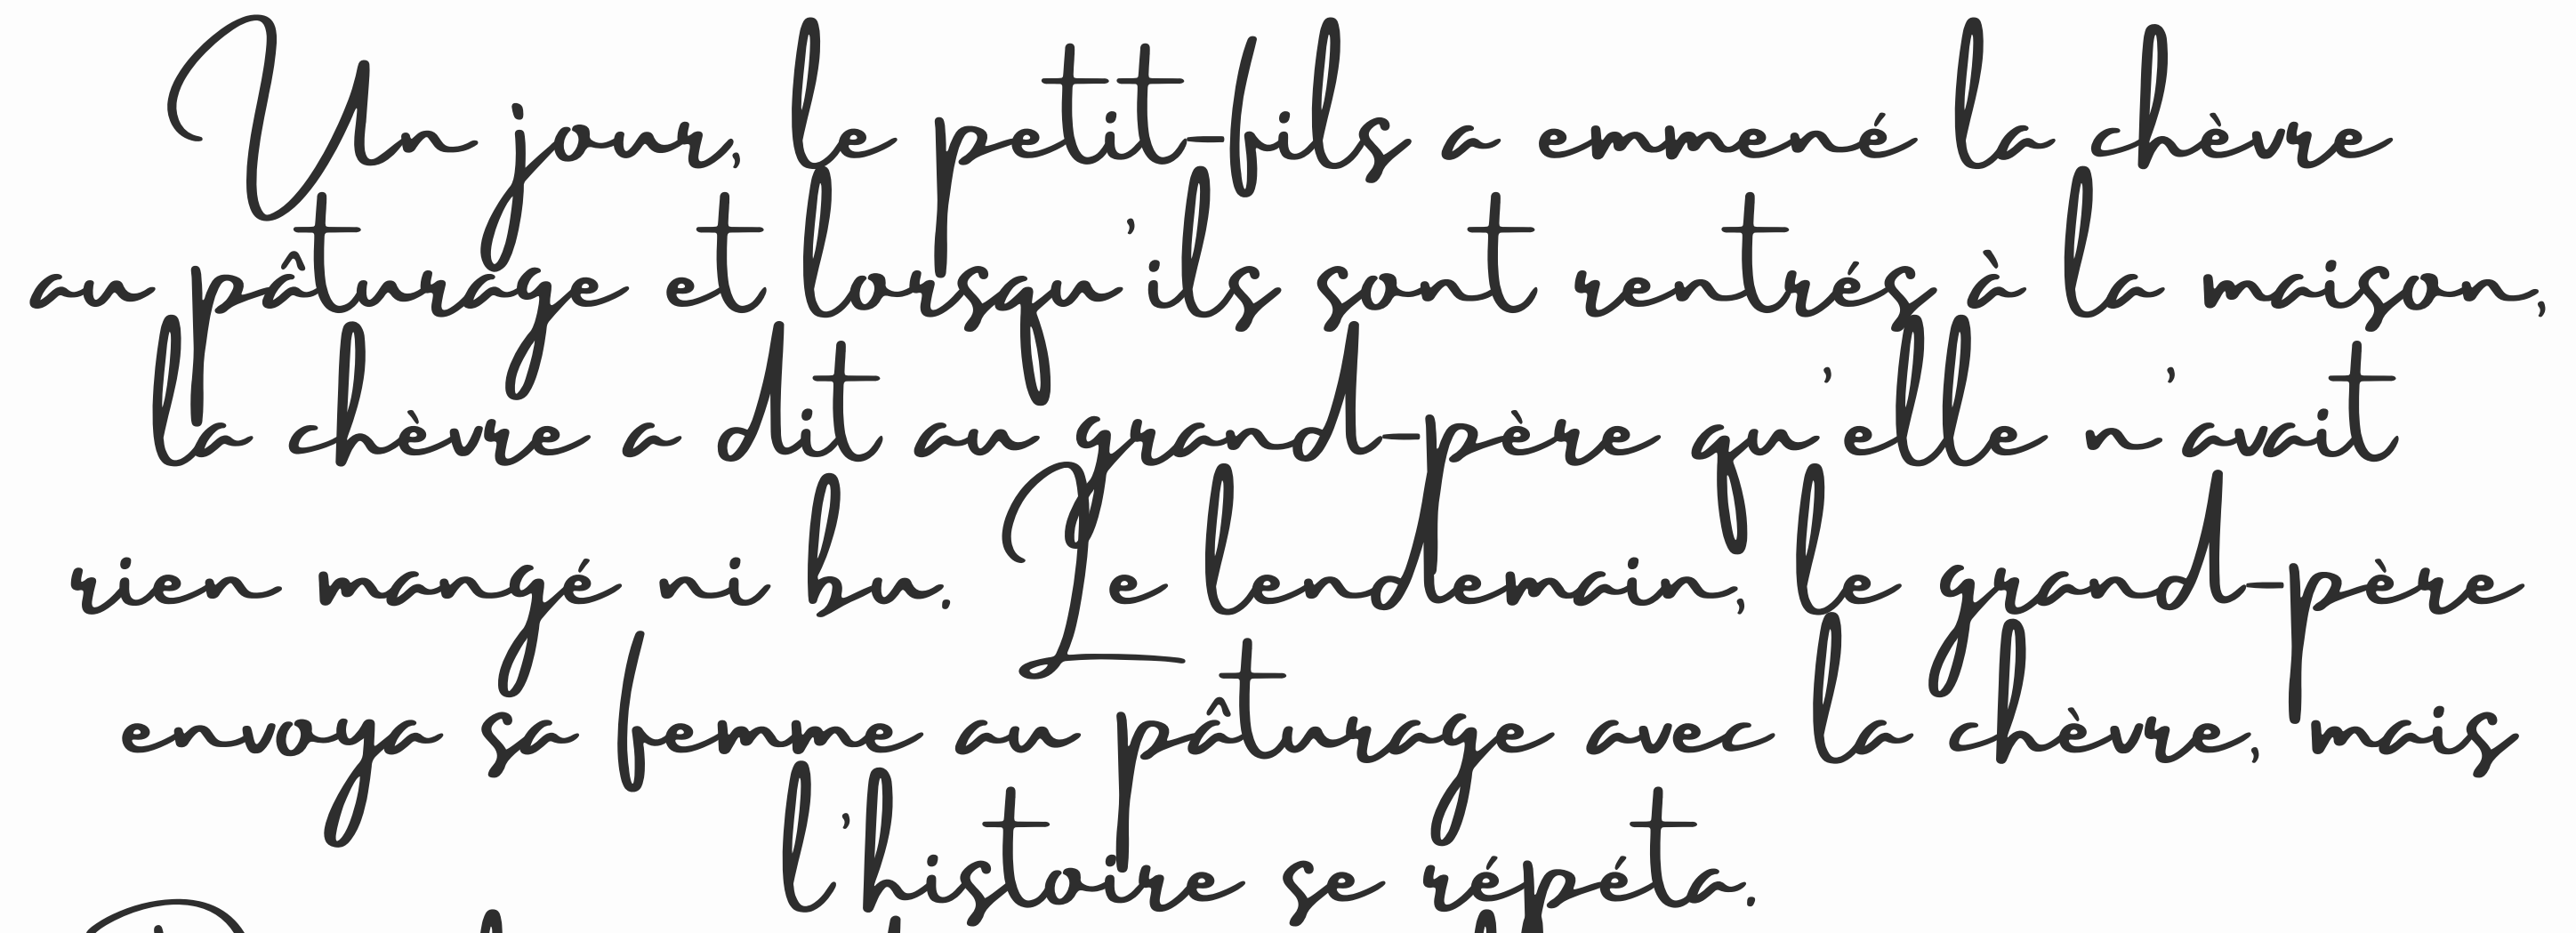 Un jour, le petit-fils a emmené la chèvre
au pâturage et lorsqu'ils sont rentrés à la maison,
la chèvre a dit au grand-père qu'elle n'avait
rien mangé ni bu. Le lendemain, le grand-père
envoya sa femme au pâturage avec la chèvre, mais
l'histoire se répéta.